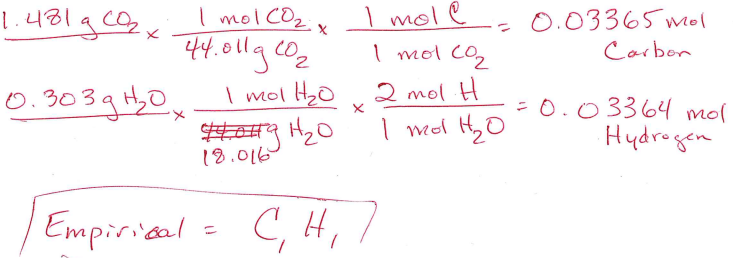 1.481 g CO₂ × 1 mol CO₂ / 44.011 g CO₂ × 1 mol C / 1 mol CO₂ = 0.03365 mol Carbon
0.303 g H₂O × 1 mol H₂O / 44.011 g 18.016 H₂O × 2 mol H / 1 mol H₂O = 0.03364 mol Hydrogen
Empirical = C₁H₁